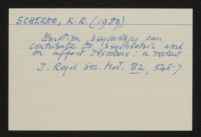 SCHERER, K.R. (1989)
Emotion psychology can
contribute to psychiatric work
on affect disorders: a review
J. Royal Soc. Med. 82, 545-7